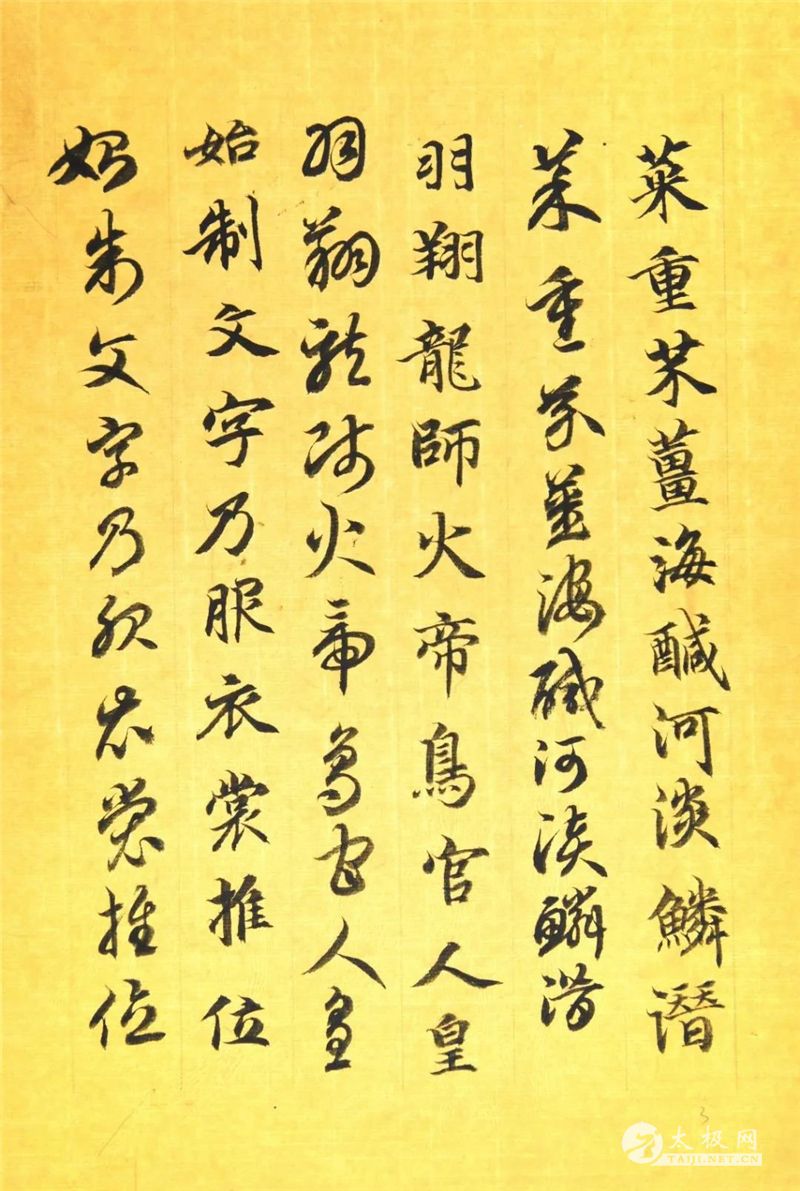 菜重芥薑海醎河淡鱗潛
菜重芥薑海醎河淡鱗潛
羽翔龍師火帝鳥官人皇
羽翔龍師火帝鳥官人皇
始制文字乃服衣裳推位
始制文字乃服衣裳推位
太极网
TAIJI.NET.CN